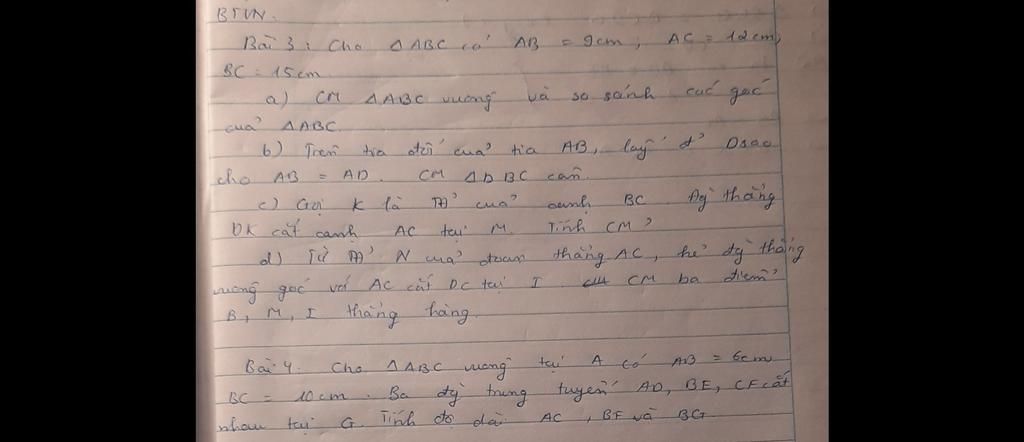 BTVN.
Bài 3 : Cho ΔABC có AB = 9cm, AC = 12cm,
BC = 15cm
a) CM ΔABC vuông và so sánh các góc
của ΔABC.
b) Trên tia đối của tia AB, lấy đ' D sao
cho AB = AD. CM ΔDBC cân.
c) Gọi K là TĐ' của cạnh BC Đg` thẳng
DK cắt cạnh AC tại M. Tính CM?
d) Từ TĐ' N của đoạn thẳng AC, kẻ đg` thẳng
vuông góc với AC cắt DC tại I. CM ba điểm
B, M, I thẳng hàng.
Bài 4. Cho ΔABC vuông tại A có AB = 6cm
BC = 10cm. Ba đg` trung tuyến AD, BE, CF cắt
nhau tại G. Tính độ dài AC, BE và BG.